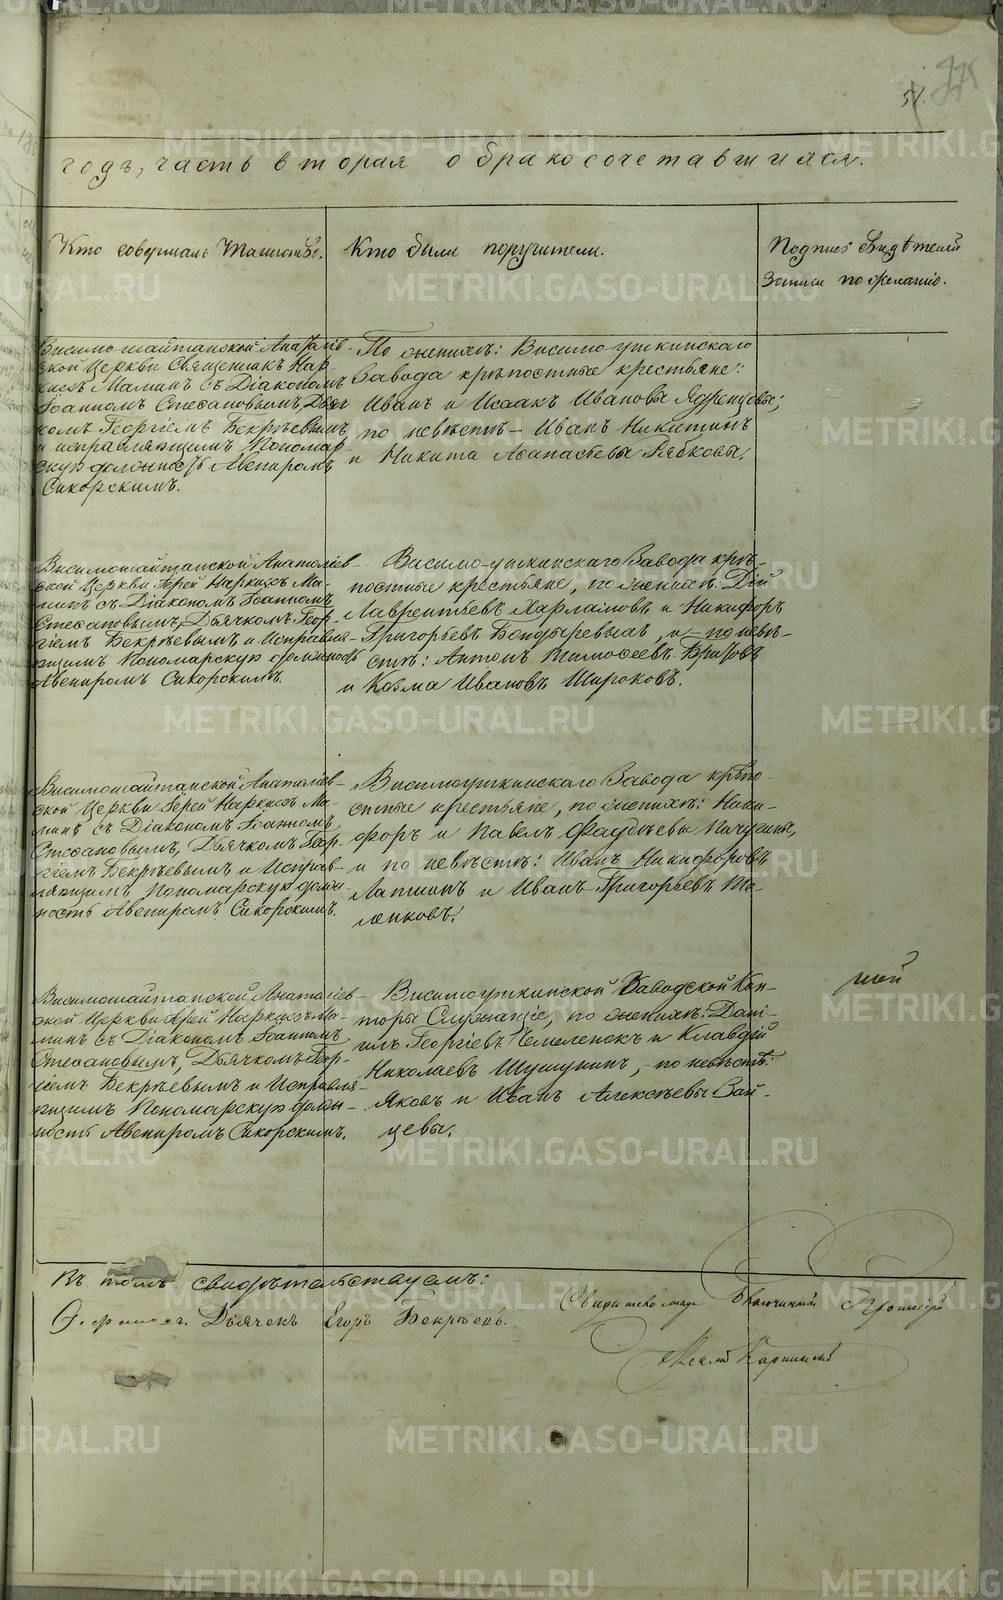 51.
годъ, часть вторая о бракосочетавшихся.
Кто совершалъ Таинство.
Кто были поручители.
Подпись Свидѣтелей
Записи по желанію.
Висимошайтанской Анатоліев-
ской Церкви Священникъ Нар-
кисъ Маминъ съ Діакономъ
Іоанномъ Стефановымъ, Дьяч-
комъ Георгіемъ Бекрѣевымъ
и исправляющимъ Пономар-
скую должность Авениромъ
Сикорскимъ.
По женихѣ: Висимоуткинскаго
Завода крѣпостные крестьяне:
Иванъ и Исаакъ Ивановы
по невѣстѣ – Иванъ Никитинъ
и Никита Аѳанасьевы Рябковы.
Висимошайтанской Анатоліев-
ской Церкви Іерей Наркисъ Ма-
минъ съ Діакономъ Іоанномъ
Стефановымъ, Дьячкомъ Геор-
гіемъ Бекрѣевымъ и Исправля-
ющимъ Пономарскую должность
Авениромъ Сикорскимъ.
Висимо-уткинскаго Завода крѣ-
постные крестьяне, по женихѣ:
Лаврентьевъ Харламовъ и Никифоръ
Григорьевъ Бондыревыхъ, и по невѣ-
стѣ: Антонъ Тимоѳеевъ
и Козма Ивановъ Широковъ.
Висимошайтанской Анатоліев-
ской Церкви Іерей Наркисъ Ма-
минъ съ Діакономъ Іоанномъ
Стефановымъ, Дьячкомъ Геор-
гіемъ Бекрѣевымъ и Исправ-
ляющимъ Пономарскую долж-
ность Авениромъ Сикорскимъ.
Висимоуткинскаго Завода крѣпо-
стные крестьяне, по женихѣ: Ники-
форъ и Павелъ Фадѣевы Пичугины,
и по невѣстѣ: Иванъ Никифоровъ
Лапшинъ и Иванъ Григорьевъ Ма-
ленковъ.
Висимошайтанской Анатоліев-
ской Церкви Іерей Наркисъ Ма-
минъ съ Діакономъ Іоанномъ
Стефановымъ, Дьячкомъ Геор-
гіемъ Бекрѣевымъ и Исправля-
ющимъ Пономарскую долж-
ность Авениромъ Сикорскимъ.
Висимоуткинской Заводской Кон-
торы Служащіе, по женихѣ: Дані-
илъ Георгіевъ и Клавдій
Николаевъ Шушунинъ, – по невѣстѣ:
Яковъ и Иванъ Алексѣевы Зай-
цевы.
Въ томъ свидѣтельствуемъ:
Дьячекъ Егоръ Бекрѣевъ.
Свидетельствуетъ Благочинный Протоіерей
Карпинскій
METRIKI.GASO-URAL.RU